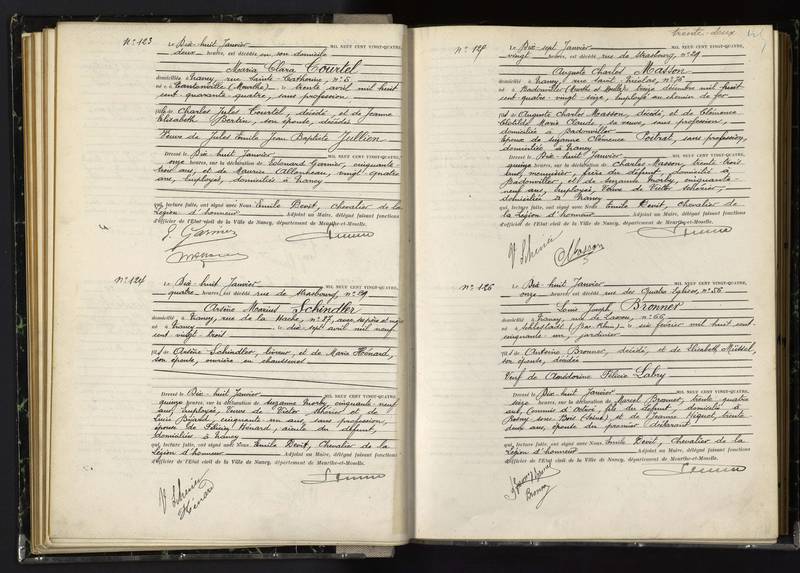 N° 123
Le Dix-huit Janvier MIL NEUF CENT VINGT-QUATRE,
deux heures, est décédée en son domicile
Maria Clara Courtel
domiciliée à Nancy, rue Sainte-Catherine, n° 5,
née à (Meurthe) le trente avril mil huit
cent quarante quatre, sans profession
fille de Charles Jules Courtel, décédé, et de Jeanne
Elisabeth Bertin, son épouse, décédée
Veuve de Jules Emile Jean Baptiste Jullien
Dressé le Dix-huit Janvier MIL NEUF CENT VINGT-QUATRE,
onze heures, sur la déclaration de Edouard Garnier, cinquante
trois ans, et de Maurice vingt-quatre
ans, employés, domiciliés à Nancy
qui, lecture faite, ont signé avec Nous Emile Devit, Chevalier de la
Légion d'honneur Adjoint au Maire, délégué faisant fonctions
d'officier de l'État civil de la Ville de Nancy, département de Meurthe-et-Moselle.
E. Garnier
N° 124
Le Dix-huit Janvier MIL NEUF CENT VINGT-QUATRE,
quatre heures, est décédé rue de Strasbourg, n° 29
Arsène Marius Schindler
domicilié à Nancy, rue de la Hache, n° 87, avec ses père et mère
né à Nancy le dix-sept avril mil neuf
cent vingt trois
fils de Arsène Schindler, livreur, et de Marie Hénard,
son épouse, ouvrière en chaussures
Dressé le Dix-huit Janvier MIL NEUF CENT VINGT-QUATRE,
quinze heures, sur la déclaration de Suzanne Morby, cinquante neuf
ans, employée, Veuve de Victor et de
cinquante six ans, sans profession,
épouse de Hénard, aïeule du défunt,
domiciliées à Nancy
qui, lecture faite, ont signé avec Nous Emile Devit, Chevalier de la
Légion d'honneur Adjoint au Maire, délégué faisant fonctions
d'officier de l'État civil de la Ville de Nancy, département de Meurthe-et-Moselle.
Hénard
trente-deux
N° 125
Le Dix-sept Janvier MIL NEUF CENT VINGT-QUATRE,
vingt heures, est décédé rue de Strasbourg, n° 29
Auguste Charles Masson
domicilié à Nancy, rue Saint-Nicolas, n° 75
né à Badonviller (Meurthe et Moselle) treize décembre mil huit
cent quatre-vingt-seize, employé au chemin de fer
fils de Auguste Charles Masson, décédé, et de Clémence
Clotilde Marie Claude, sa veuve, sans profession,
domiciliée à Badonviller
Epoux de Suzanne Clémence Poirot, sans profession,
domiciliée à Nancy
Dressé le Dix-huit Janvier MIL NEUF CENT VINGT-QUATRE,
quinze heures, sur la déclaration de Charles Masson, trente trois
ans, menuisier, frère du défunt, domicilié à
Badonviller, et de Suzanne Morby, cinquante-
neuf ans, employée, Veuve de Victor
domiciliée à Nancy
qui, lecture faite, ont signé avec Nous Emile Devit, Chevalier de
la Légion d'honneur Adjoint au Maire, délégué faisant fonctions
d'officier de l'État civil de la Ville de Nancy, département de Meurthe-et-Moselle.
Masson
N° 126
Le Dix-huit Janvier MIL NEUF CENT VINGT-QUATRE,
onze heures, est décédé rue des Quatre Eglises, n° 56
Louis Joseph Bronner
domicilié à Nancy, rue de n° 66
né à Schlestadt (Bas Rhin) le six février mil huit cent
cinquante un, jardinier
fils de Antoine Bronner, décédé, et de Elisabeth
son épouse, décédée
Veuf de Félicie Labry
Dressé le Dix-huit Janvier MIL NEUF CENT VINGT-QUATRE,
seize heures, sur la déclaration de Marcel Bronner, trente quatre
ans, fils du défunt, domicilié à
Rosny sous Bois (Seine), et de Jeanne trente
deux ans, épouse du premier déclarant
qui, lecture faite, ont signé avec Nous Emile Devit, Chevalier de la
Légion d'honneur Adjoint au Maire, délégué faisant fonctions
d'officier de l'État civil de la Ville de Nancy, département de Meurthe-et-Moselle.
Bronner